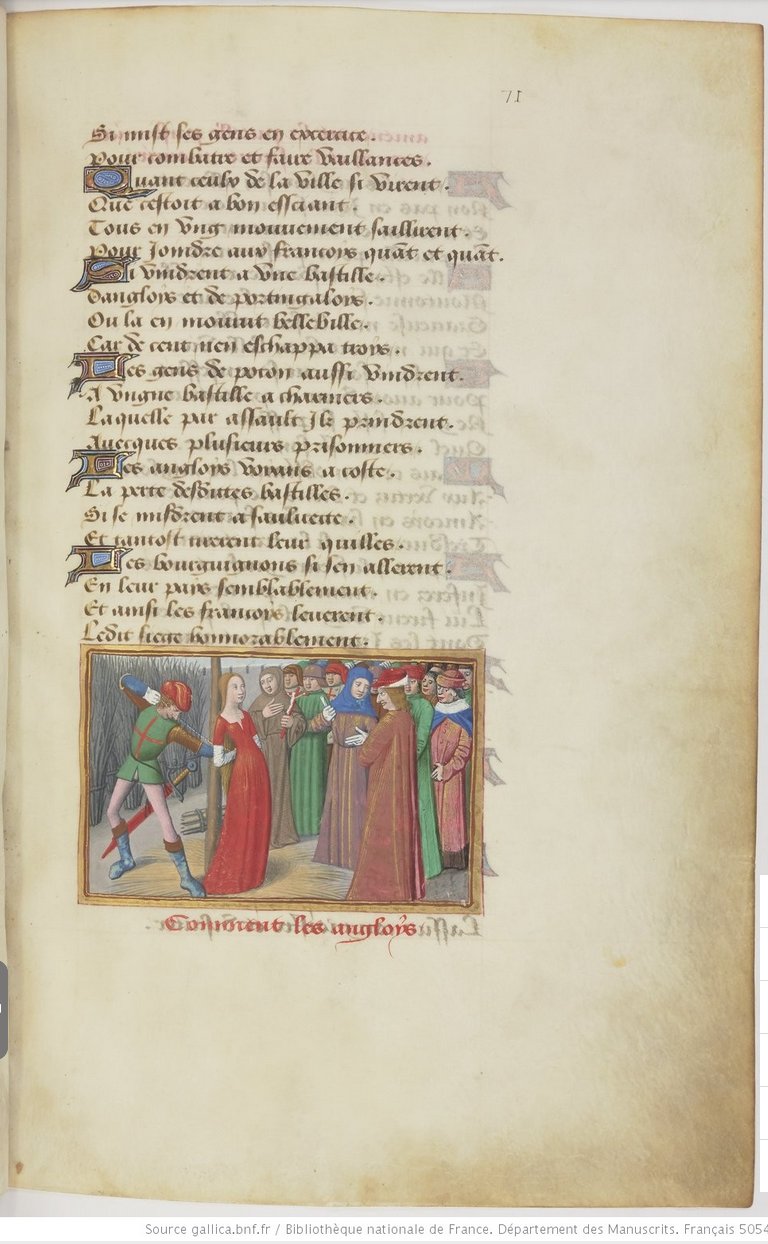 71
Si mist ses gens en excercite.
Pour combatre et faire vaillances.
Quant ceulx de la ville si virent.
Que cestoit a bon essciant.
Tous en vng mouuement saillirent.
Pour Joindre aux francoys quāt et quāt.
Si vindrent a vne bastille.
Dangloys et de portingaloys.
Ou la en mourut bellebille.
Car de cent nen eschappa troys.
Les gens de poton aussi vindrent.
A vngne bastille a charniers.
Laquelle par assault Ilz prindrent.
Auecques plusieurs prisonniers.
Les angloys voyans a coste.
La perte desdittes bastilles.
Si se misdrent a sauluete.
Et tantost tirerent leur quilles.
Les bourguignons si sen allerent.
En leur pays semblablement.
Et ainsi les francoys leuerent.
Ledit siege honnorablement.
Comment les angloys
Source gallica.bnf.fr / Bibliothèque nationale de France. Département des Manuscrits. Français 5054